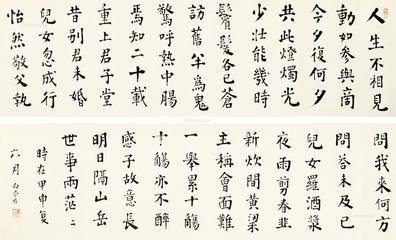 人生不相見
動如參與商
今夕復何夕
共此燈燭光
少壯能幾時
鬢髮各已蒼
訪舊半爲鬼
驚呼熱中腸
焉知二十載
重上君子堂
昔別君未婚
兒女忽成行
怡然敬父執
問我來何方
問答未及已
兒女羅酒漿
夜雨剪春韭
新炊間黃粱
主稱會面難
一舉累十觴
十觴亦不醉
感子故意長
明日隔山岳
世事兩茫〻
時在甲申夏
六月